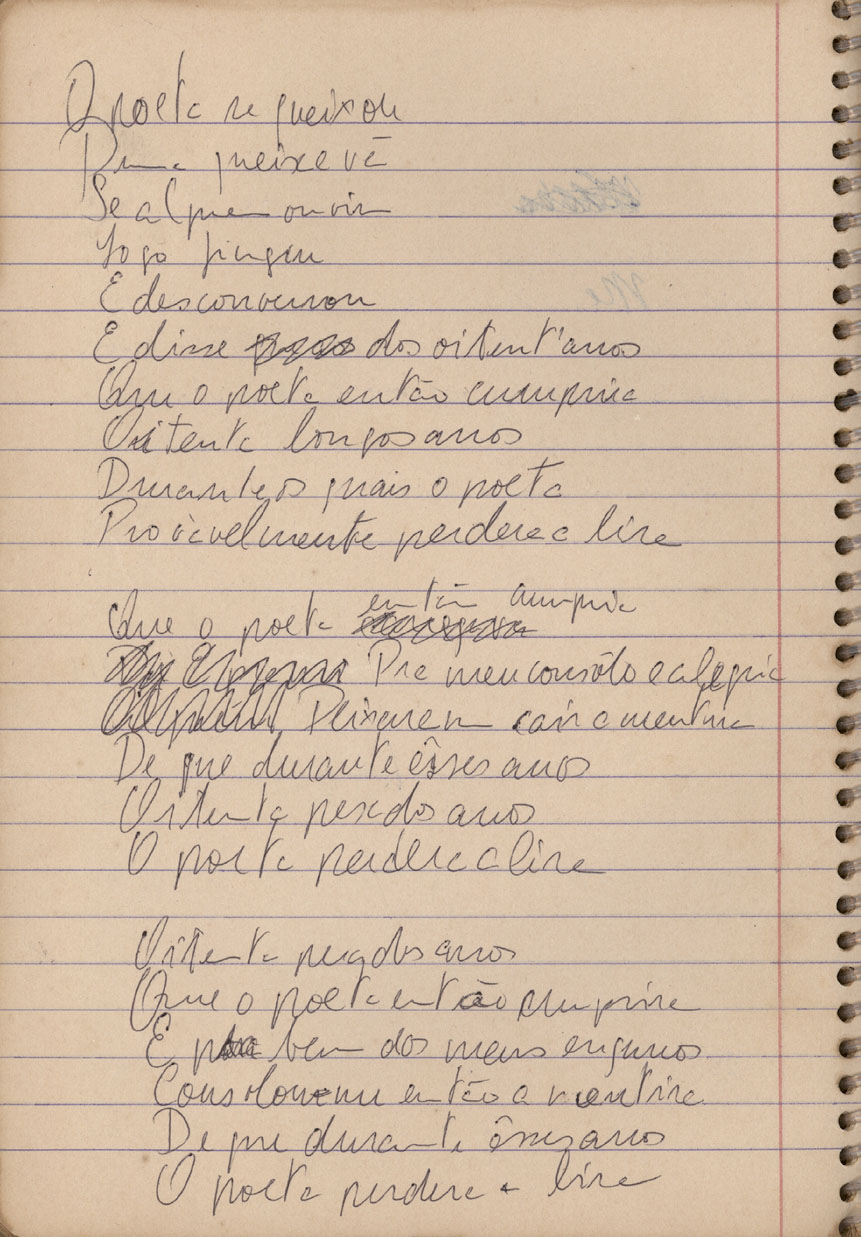 O poeta se queixou
Duma queixa vã
Se alguem ouviu
Logo fingiu
E desconversou
E disse dos oitent'anos
Que o poeta então cumprira
Oitenta longos anos
Durante os quais o poeta
Provàvelmente perdera a lira
Que o poeta então cumpria
Pra meu consôlo e alegria
Deixaram cair a mentira
De que durante êsses anos
Oitenta pesados anos
O poeta perdera a lira
Oitenta pesados anos
Que o poeta então cumprira
E bem dos meus enganos
Consolou-me então a mentira
De que durante êsses anos
O poeta perdera a lira